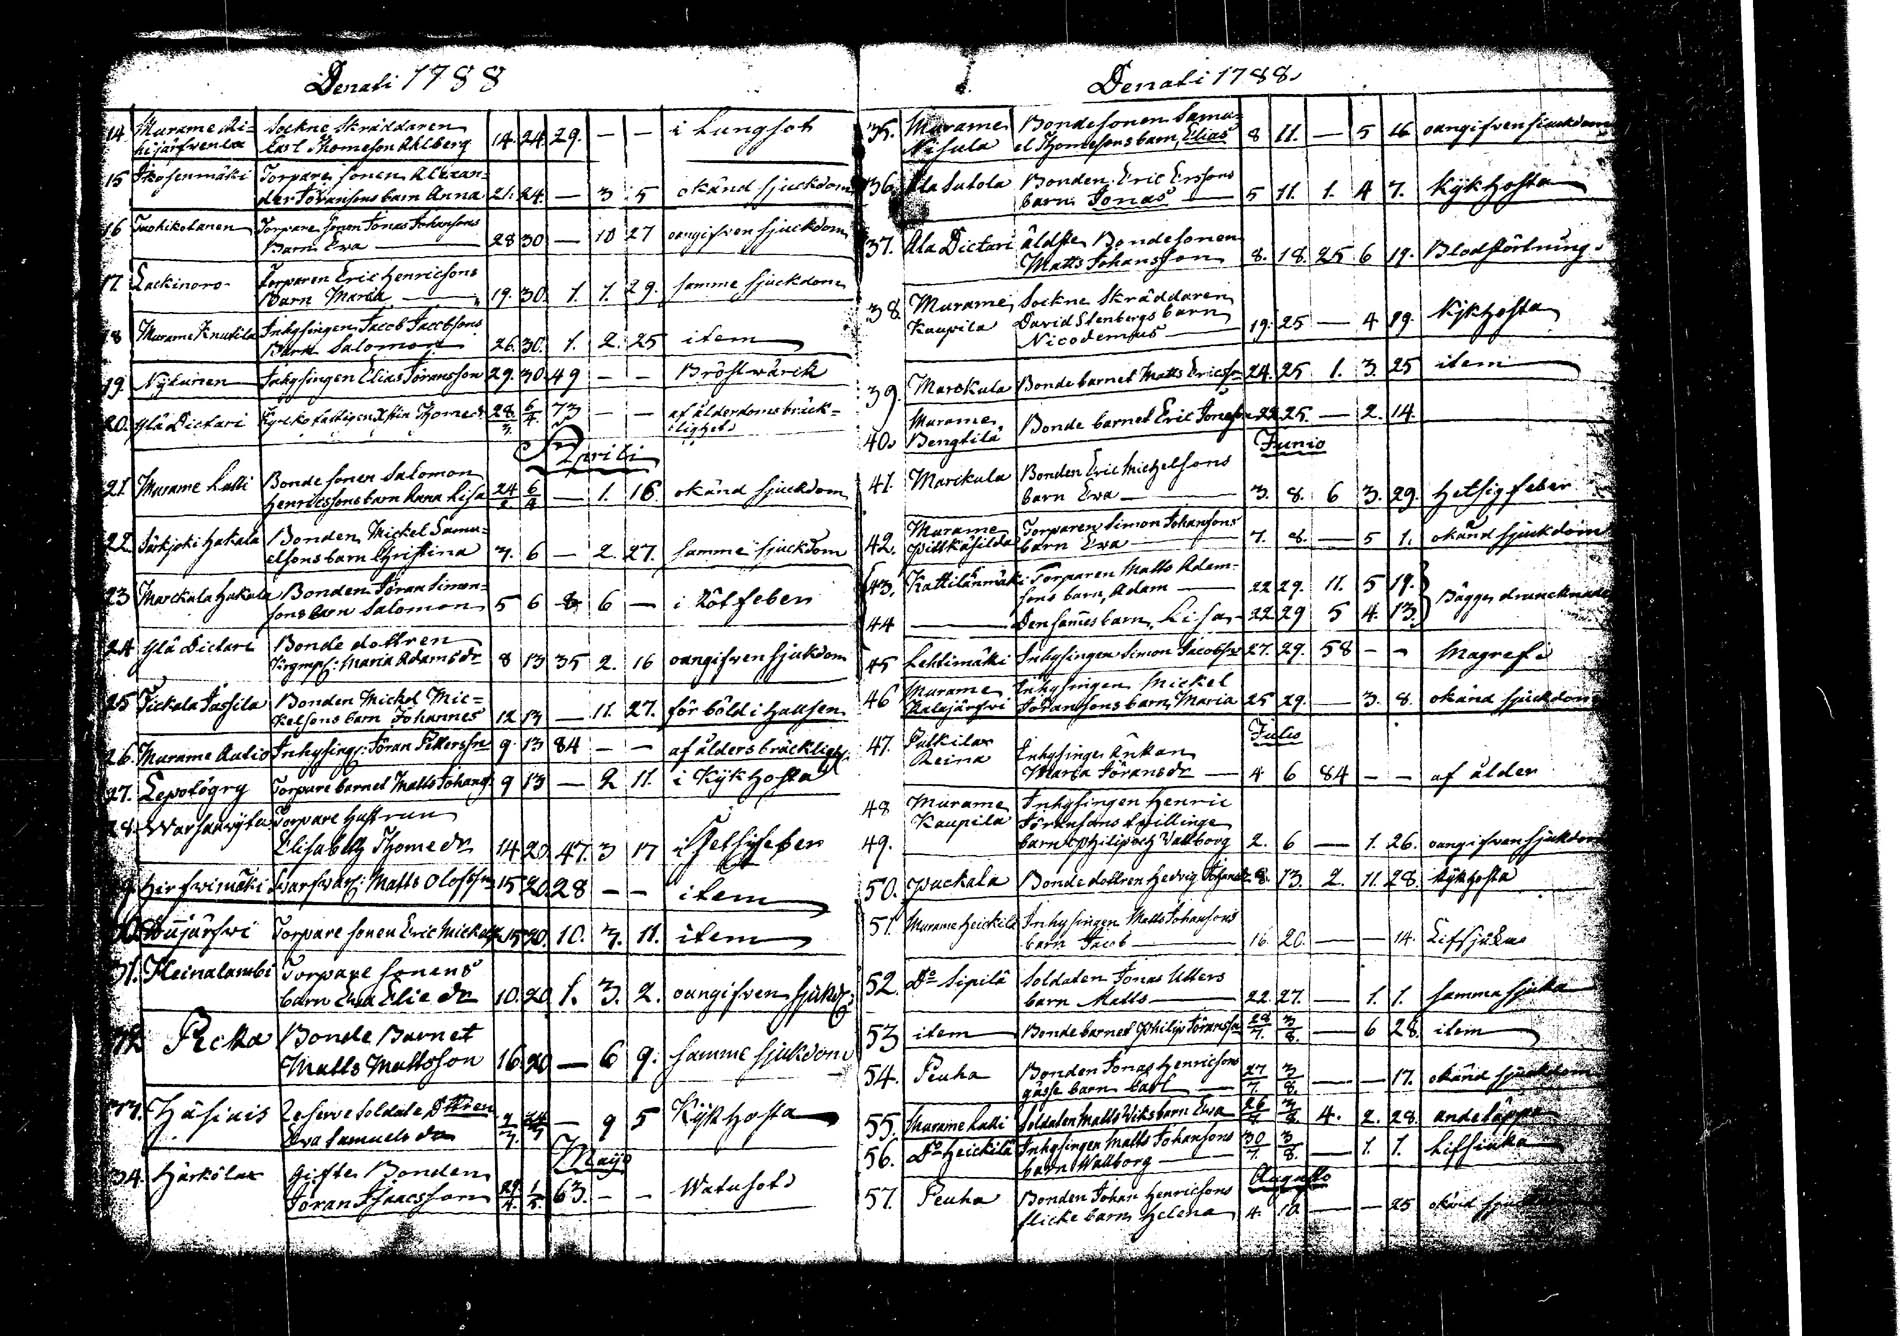 Denati 1788
14 Murame Ri- Sockne Skräddaren
hijärfvenla Carl Thomeson Ahlberg 14. 24. 29. — — i Lungsot
15 Ikosenmäki Torpare sonen Alexan-
der Göransons barn Anna 21. 24. — 3. 5 okänd sjuckdom
16 Torpare sonen Jonas Johansons
Barn Ewa — 28 30 — 10 27 oangifven sjuckdom
17. Lackinoro Torparen Eric Henricsons
Barn Maria — 19. 30. 1. 1. 29. samme sjuckdom
18 Murame Knuutila Inhysingen Jacob Jacobsons
Barn Salomon 26. 30. 1. 2. 25 item
19. Nykänen Inhysingen Elias Göransson 29. 30. 49 — — Bröstwärck
20. Ylä Dictari Thomedr 28/3. 6/4. 73 — — af ålderdomsbräck-
lighet
Aprili
21 Murame Lassi Bonde sonen Salomon
Henricssons barn Anna Lisa 24/2 6/4 — 1. 16. okänd sjuckdom
22. Särkjoki Hakala Bonden Mickel Samu-
elsons barn Christina 3. 6 — 2. 27. samme sjuckdom
23 Marckala Hakala Bonden Göran Simon-
sons barn Salomon 5 6 8. 6 — i Rötfeber
24 Ylä Dictari Bonde dottren
Maria Adamsdr 8 13 35 2. 16 oangifven sjukdom
25 Jickala Passila Bonden Mickel Mic-
kelsons barn Johannes 12 13 — 11. 27. för böld i halsen
26. Murame Autio Inhysing: Göran Pettersson 9. 13 84 — — af ålders bräcklighet
27. Lepotögry Torpare barnet Matts Johans: 9 13 — 2 11. i Kykhosta
28. Torpare hustrun
Elisabeth Thomedr 14 20. 47. 3 17 i Hetsig feber
29. Hirfwimäki Matts Olofsson 15 20 28 — — item
30. Torpare sonen Eric Mickels: 15 20. 10. 3. 11. item
31. Heinalambi Torpare sonens
barn Ewa Eliedr 10. 20. 1. 3. 2. oangifven sjukd:
32. Pecka Bonde Barnet
Matts Mattsson 16. 20 — 6 9. samme sjukdom
33. Häsinis Reserve Soldate Dttren
Ewa Samuelsdr — 9 5 Kijkhosta
Maijo
34. Härkölax Gifte Bonden
Göran Isaacsson 29/4. 1/5. 63. — — Watusot
Denati 1788
35. Murame Bonde sonen Samu-
Nisula el Thomesons barn Elias 8 11. — 5 16 oangifven sjuckdom
36. Ala Sutola Bonden Eric Ersons
barn Jonas — 5 11. 1. 4 7. Kykhosta
37. Ala Dictari äldste Bonde sonen
Matts Johansson 8. 18. 25 6 19. Blodstörtning
38. Murame Sockne Skräddaren
Kaupila David Stenbergs barn
Nicodemus — 19. 25 — 4 19 Kykhosta
39. Marckula Bonde barnet Matts Ericsson 24. 25 1. 3. 25 item
Murame
40. Bengtila Bonde barnet Eric Jonsson 22 25. — 2. 14.
Junio
41. Marckala Bonden Eric Michelsons
barn Ewa — 3. 8. 6 3. 29. Hetsig feber
Murame Torparen Simon Johansons
42. Pittkäsilda barn Ewa — 7. 8. — 5 1. okänd sjuckdom
43. Kattilänmäki Torparen Matts Adam-
sons barn, Adam — 22 29. 11. 5 19.
Bägge drunknade
44 — Den sames barn, Lisa 22 29 5 4. 13.
45 Lehtimäki Inhysingen Simon Jacobson 27. 29. 58 - - Magref
46 Murame Inhysingen Mickel
Kalajärfwi Göransons barn Maria 25 29. — 3. 8. okänd sjuckdom
Julio
47. Pulkila
Reina Inhysinge Änkan
Maria Göransdr — 4 6 84 - - af ålder
48 Murame Inhysingen Henric
Kaupila Göransons tvillinge
49. barn Philip och Wallborg 2. 6 — 1. 26. oangifven sjukdom
50. Puckala Bonde dottren Hedvig 8. 13. 2. 11 28. Kykhosta
51. Murame Heickilä Inhysingen Matts Johansons
barn Jacob — 16. 20. — — 14. Lifsjuka
52. Do Sipilä Soldaten Jonas Utters
barn Matts — 22. 27. — 1. 1. samma sjuka
53 item Bonde barnet Philip Göransson 28/7. 3/8. — 6 28. item
54. Peuha Bonden Jonas Henricsons
gåsse barn Carl — 27/7. 3/8. — — 17. okänd sjuckdom
55. Murame Lassi Soldaten Matts Wiks barn Ewa 26/7 3/8 4. 2. 28. andetäppa
56. Do Heickilä Inhysingen Matts Johansons
barn Wallborg — 30/7. 3/8. — 1. 1. Lifsiuka
Augusto
57. Peuha Bonden Johan Henricsons
flicke barn Helena 4. 10. — — 25 okänd